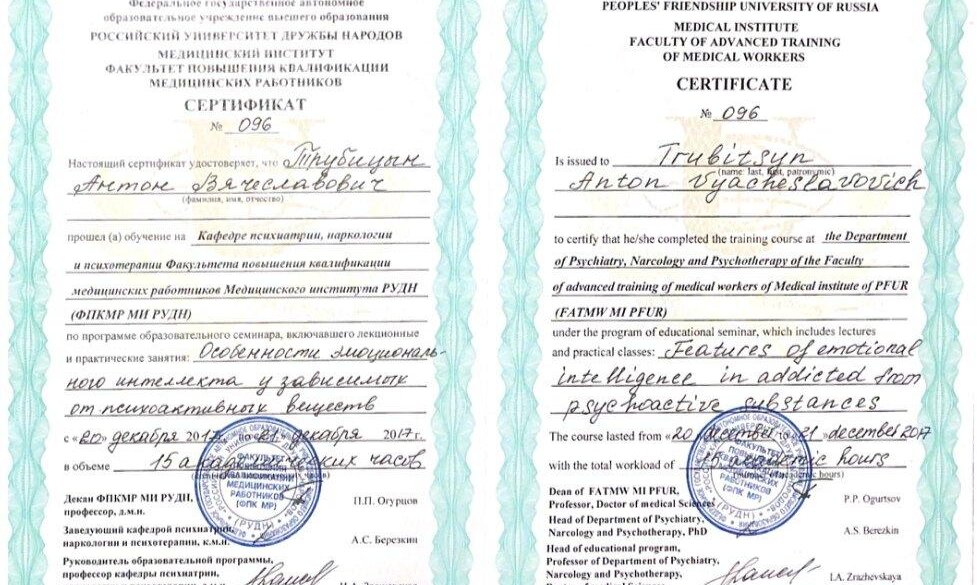 Федеральное государственное автономное
образовательное учреждение высшего образования
РОССИЙСКИЙ УНИВЕРСИТЕТ ДРУЖБЫ НАРОДОВ
МЕДИЦИНСКИЙ ИНСТИТУТ
ФАКУЛЬТЕТ ПОВЫШЕНИЯ КВАЛИФИКАЦИИ
МЕДИЦИНСКИХ РАБОТНИКОВ
СЕРТИФИКАТ
№ 096
Настоящий сертификат удостоверяет, что Трубицын
Антон Вячеславович
(фамилия, имя, отчество)
прошел (а) обучение на Кафедре психиатрии, наркологии
и психотерапии Факультета повышения квалификации
медицинских работников Медицинского института РУДН
(ФПКМР МИ РУДН)
по программе образовательного семинара, включавшего лекционные
и практические занятия: Особенности эмоциональ-
ного интеллекта у зависимых
от психоактивных веществ
с «20» декабря 2017 по «21» декабря 2017г.
в объеме 15 академических часов
ФАКУЛЬТЕТ
ПОВЫШЕНИЯ
КВАЛИФИКАЦИИ
МЕДИЦИНСКИХ
РАБОТНИКОВ
(ФПК МР)
(РУДН)
Декан ФПКМР МИ РУДН,
профессор, д.м.н.
П.П. Огурцов
Заведующий кафедрой психиатрии,
наркологии и психотерапии, к.м.н.
А.С. Березкин
Руководитель образовательной программы,
профессор кафедры психиатрии,
PEOPLES' FRIENDSHIP UNIVERSITY OF RUSSIA
MEDICAL INSTITUTE
FACULTY OF ADVANCED TRAINING
OF MEDICAL WORKERS
CERTIFICATE
№ 096
Is issued to Trubitsyn
(name: last, first, patronymic)
Anton Vyacheslavovich
to certify that he/she completed the training course at the Department
of Psychiatry, Narcology and Psychotherapy of the Faculty
of advanced training of medical workers of Medical institute of PFUR
(FATMW MI PFUR)
under the program of educational seminar, which includes lectures
and practical classes: Features of emotional
intelligence in addicted from
psychoactive substances
The course lasted from «20 december to 21 » december 2017
with the total workload of 15 academic hours
(academic hours)
Dean of FATMW MI PFUR,
Professor, Doctor of medical Sciences
P.P. Ogurtsov
Head of Department of Psychiatry,
Narcology and Psychotherapy, PhD
A.S. Berezkin
Head of educational program,
Professor of Department of Psychiatry,
Narcology and Psychotherapy
I.A. Zrazhevskaya